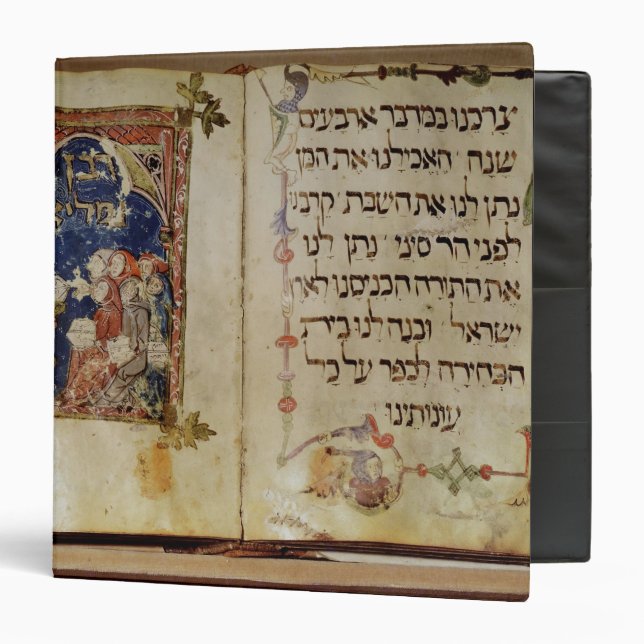 רבן
צרכנו במדבר ארבעים
שנה האכילנו את המן
נתן לנו את השבת קרבנו
לפני הר סיני נתן לנו
את התורה הכניסנו לארץ
ישראל ובנה לנו בית
הבחירה לכפר על כל
עונותינו